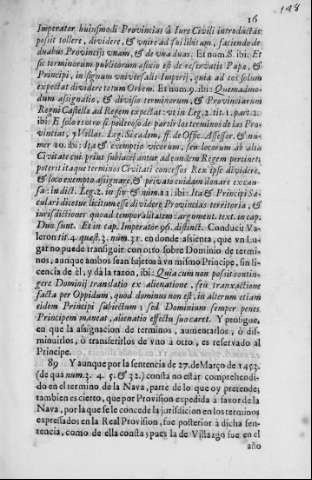 16
148
Imperator huiusmodi Provincias à Iure Civili introductas
possit tollere, dividere, & vnire ad sui libitum, faciendo de
duabus Provincijs vnam, & de vna duas. Et num. 8. ibi: Et
sic terminorum publicorum assicio est de reservatis Papæ, &
Principi, in signum vniversalis Imperij, quia ad eos solum
expectat dividere totum Orbem. Et num. 9. ibi: Quemadmo-
dum assignatio, & divisio terminorum, & Provinciarum
Regni Castellæ ad Regem expectat: vt in Leg. 2. tit. 1. part. 2.
ibi: E solo era poderoso de partir los terminos de las Pro-
vincias, y Villas. Leg. Si eadem, ff. de Offic. Assessor. & nu-
mer. 10. ibi: Ita & exemptio vicorum, seu locorum ab alia
Civitate cui prius subiacebantur ad eandem Regem pertinet,
poterit itaque terminos Civitati concessos Rex ipse dividere,
& loco exempto assignare, & privato quidam donare ex cau-
sa: in dict. Leg. 2. in fin. & num. 12. ibi: Ita & Principi Sæ-
culari dicetur licitum esse dividere Provincias territoria, &
iurisdictiones quoad temporalitatem: argument. text. in cap.
Duo sunt. Et in cap. Imperator 96. distinct. Conducit Va-
leron tit. 4. quæst. 3. num. 31. en donde assienta, que vn Lu-
gar no puede transigir con otro sobre Dominio de termi-
nos, aunque ambos sean sujetos à vn mismo Principe, sin li-
cencia de èl; y dà la razon, ibi: Quia cum non possit contin-
gere Dominij translatio ex alienatione, seu transactione
facta per Oppidum, quod dominus non est, in alterum etiam
eidem Principi subiectum; sed Dominium semper penes
Principem maneat, alienatio effectu vacaret. Y prosigue,
en que la assignacion de terminos, aumentarlos, ò dis-
minuirlos, ò transferirlos de vno à otro, es reservado al
Principe.
89 Y aunque por la sentencia de 27. de Março de 1453.
(de qua num. 3. 4. 5. & 32.) consta no estàr comprehendi-
do en el termino de la Nava, parte de lo que oy pretende;
tambien es cierto, que por Provision expedida à favor de la
Nava, por la que se le concede la jurisdiccion en los terminos
expressados en la Real Provision, fue posterior à dicha sen-
tencia, como de ella consta; pues la de Villazgo fue en el
año